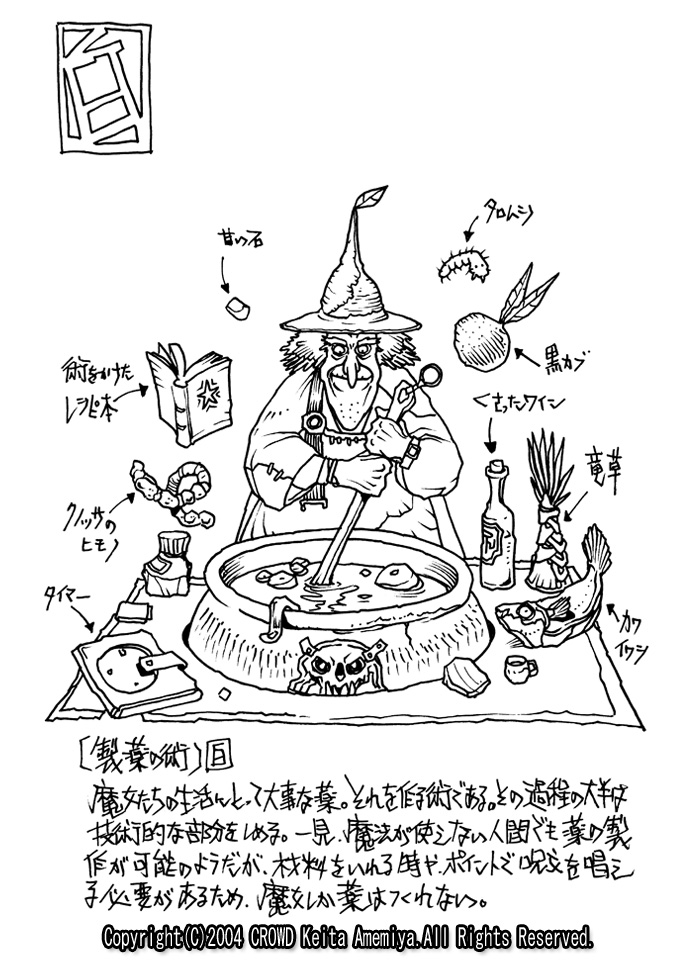 甘い石
タロムシ
黒カブ
術をかけた
レシピ本
くさったワイン
竜草
クノッサの
ヒモノ
タイマー
カワ
イワシ
[製薬の術]
魔女たちの生活にとって大事な薬。それを作る術である。その過程の大半は
技術的な部分をしめる。一見、魔法が使えない人間でも薬の製
作が可能のようだが、材料をいれる時や、ポイントで呪文を唱え
る必要があるため、魔女しか薬はつくれない。
Copyright(C)2004 CROWD Keita Amemiya.All Rights Reserved.